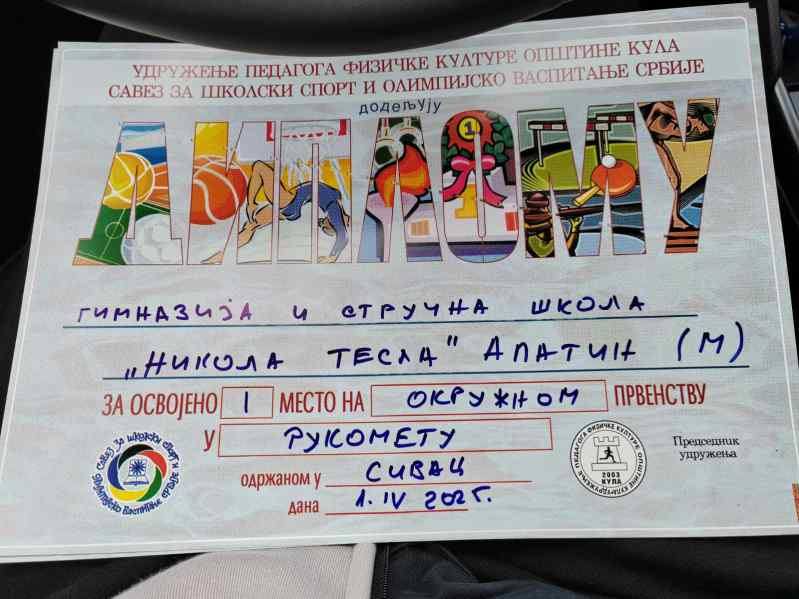 УДРУЖЕЊЕ ПЕДАГОГА ФИЗИЧКЕ КУЛТУРЕ ОПШТИНЕ КУЛА
САВЕЗ ЗА ШКОЛСКИ СПОРТ И ОЛИМПИЈСКО ВАСПИТАЊЕ СРБИЈЕ
додељују
ДИПЛОМУ
ГИМНАЗИЈА И СТРУЧНА ШКОЛА
„НИКОЛА ТЕСЛА" АПАТИН (М)
ЗА ОСВОЈЕНО I МЕСТО НА ОКРУЖНОМ ПРВЕНСТВУ
У РУКОМЕТУ
одржаном у СИВАЦ
дана 1. IV 2025.
Председник
удружења
САВЕЗ ЗА ШКОЛСКИ СПОРТ И
ВАСПИТАЊЕ
ПЕДАГОГА ФИЗИЧКЕ КУЛТУРЕ ОПШТИНЕ КУЛА
2003
КУЛА